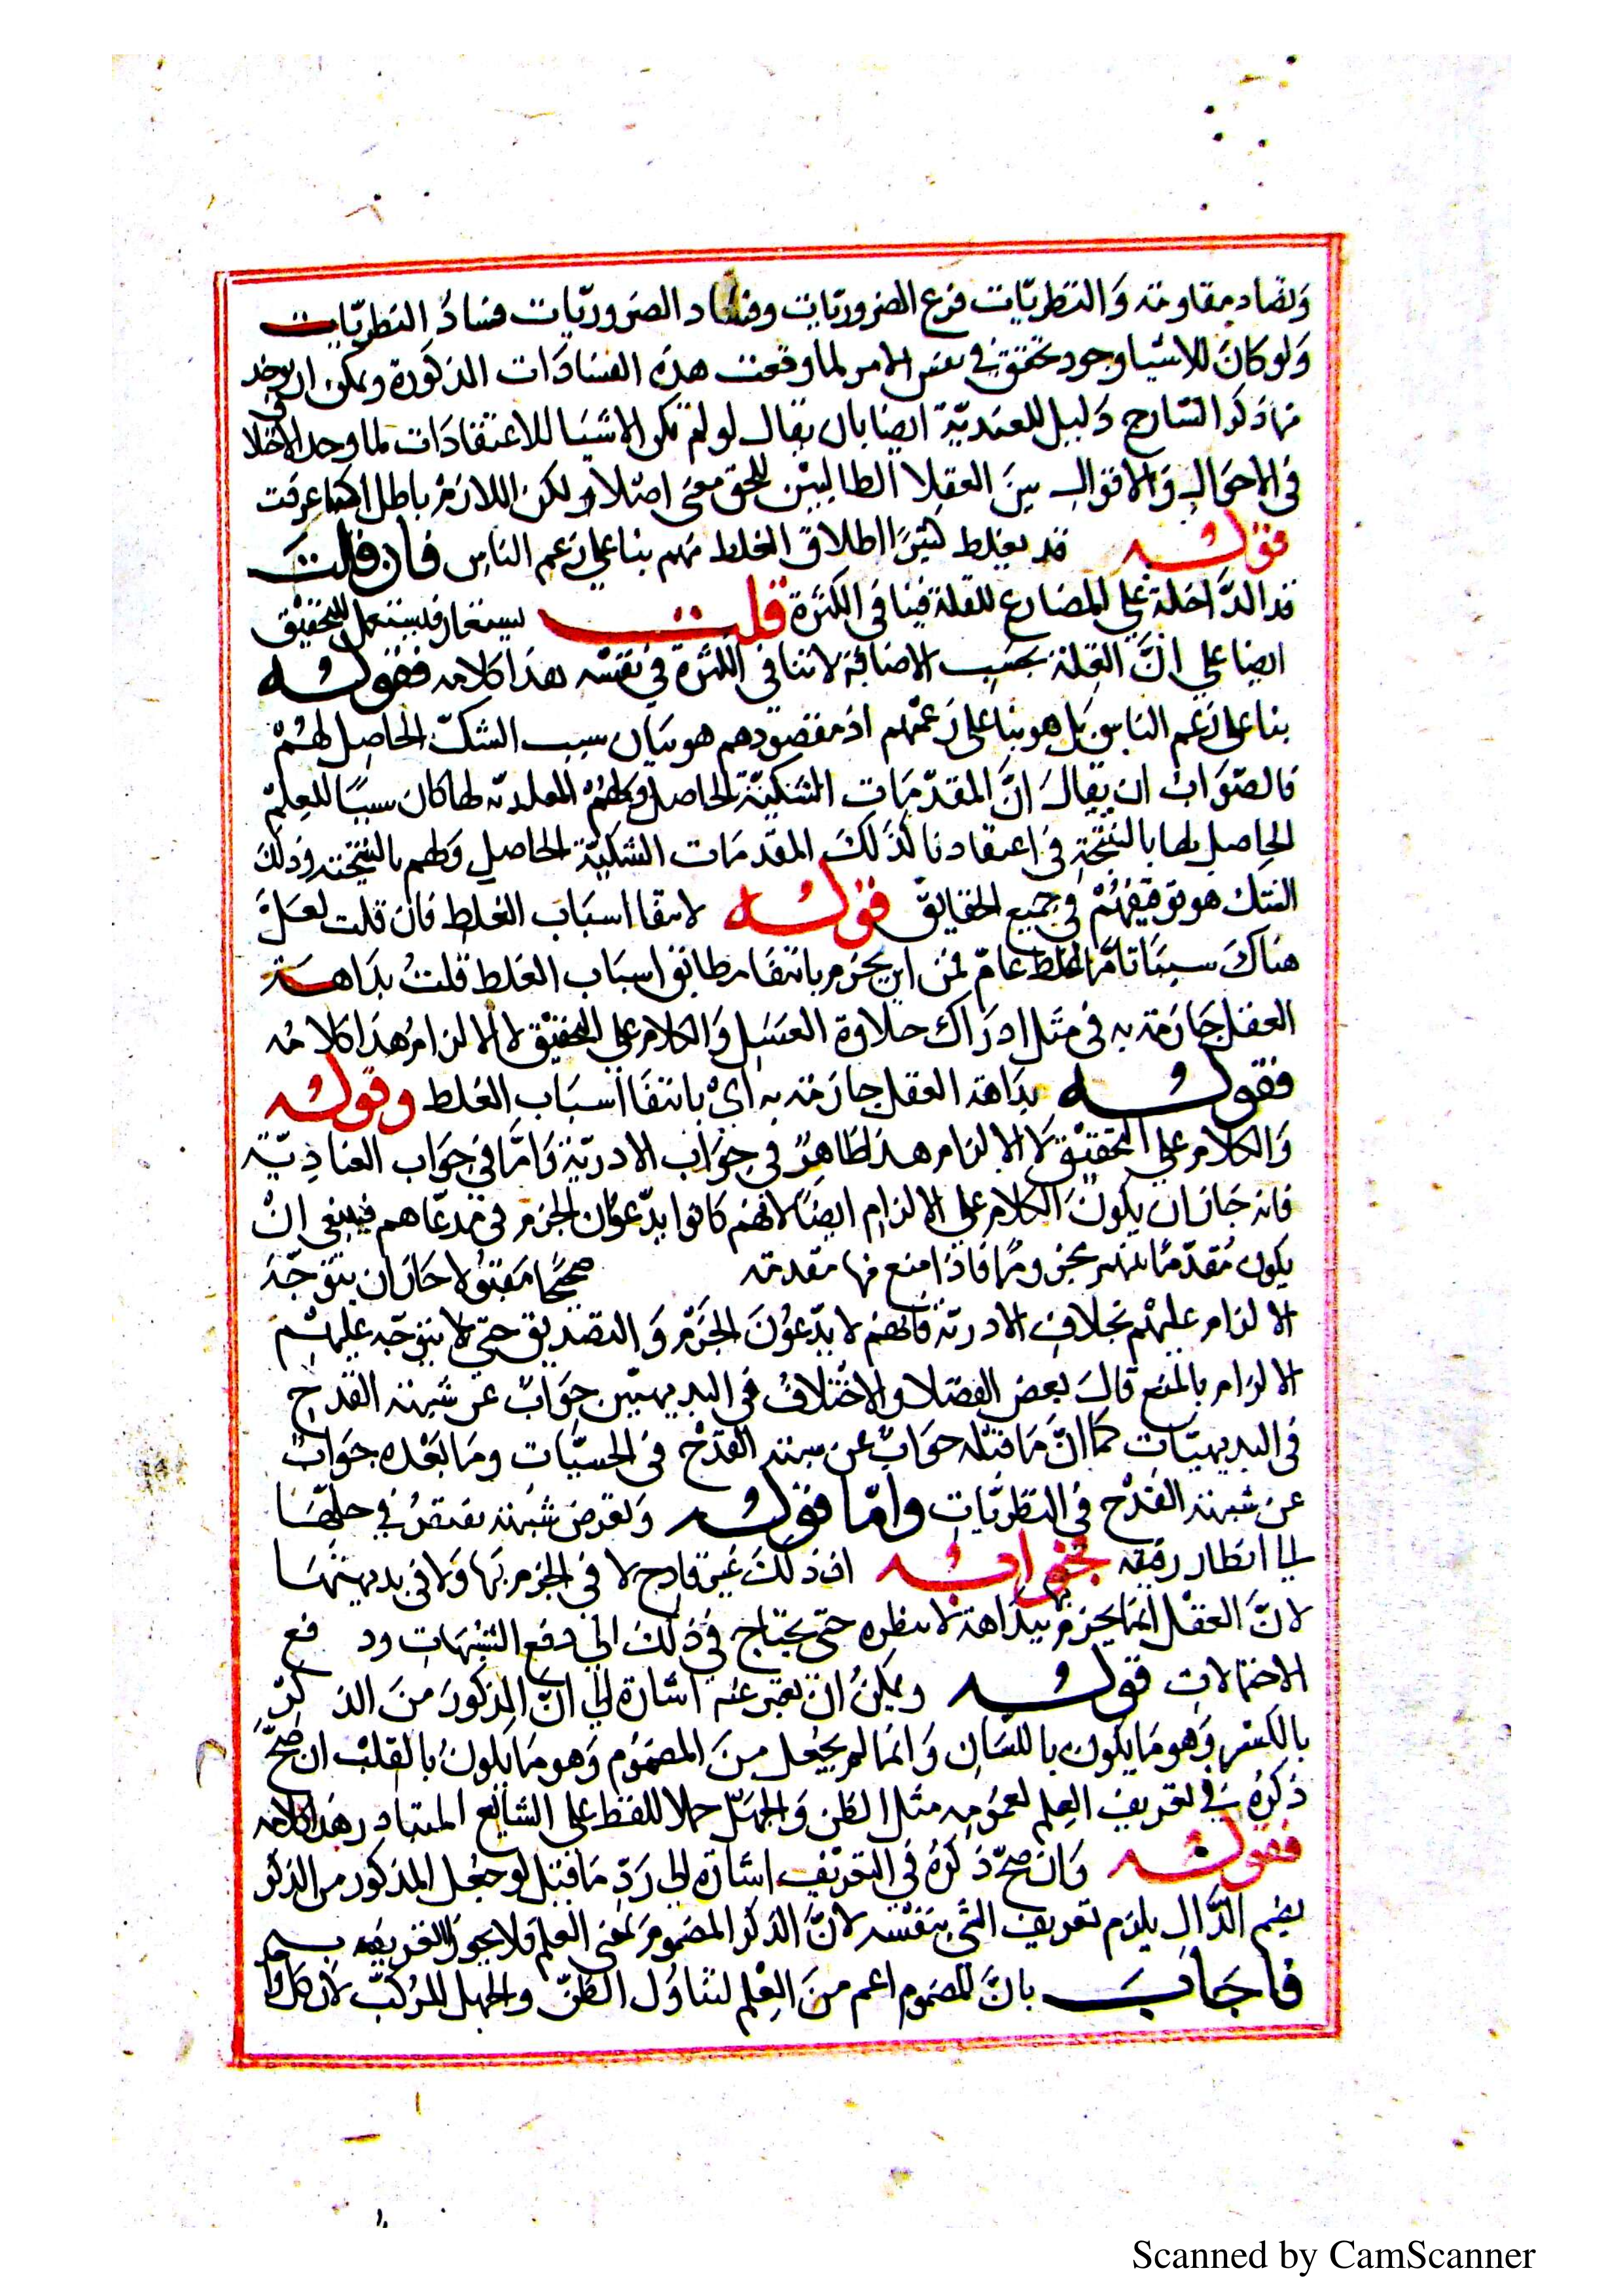 وتضاد مقاومته والنظريّات فرع الضروريّات وفساد الضروريّات فسادُ النظريّات
ولو كانَ للاشيا وجود تحقق في نفس الامر لما وقعت هذه الفسادَات المذكورة ويمكن ان يوخذ
مما ذكر الشارح دَليل للعنديّة ايضا بان يقال لو لم تكن الاشيَا للاعتقادَات لما وجد الاختلا
في الاحوَال وَالاقوال بينَ العقلا الطالبيْن للحق معنى اصلا ولكن اللازم باطل كما عرفت
قوله قد يغلط كثيرًا اطلاق الغلط منهم بنا على زعم الناس فان قلتَ
قد الدَّاخلة على المضارع للقلة فينافي الكثرة قلت يستعار فيستعمل للتحقيْق
ايضا على انَّ القلة بحسَب الاضافة لا تنافي الكثرة في نفسْه هذا كلامه فقوله
بنا على زعم الناس بَل هو بنا على زعمْهم اذ مقصودهم هو بيَان سبب الشكّ الحاصل لهُمْ
فالصّوَابُ ان يقالَ انَّ المقدّمَات الشكيّة الحاصل لهُمْ لما كان سببًا للعلِم
الحاصل لها بالنتيْجة في اعتقادنا كذَلكَ المقدّمَات الشكيّة الحاصل لهم بالنتيجة وذلك
الشك هو توقفهُمْ في جميع الحقائق قوله لانتفا اسبَاب الغلط فان قلت لعَلَّ
هناكَ سببًا تامًّا لغلط عامّ فمن اين يجزم بانتفا مطلق اسبَاب الغلط قلتُ بدَاهة
العقل جَازمة به في مثَل ادرَاك حلاوة العسَل وَالكلام على التحقيْق لا الالزام هذا كلامُه
فقوله بدَاهة العقل جازمة به ايْ بانتفَا اسبَاب الغلط وقوله
وَالكلام على التحقيْق لا الالزام هذا ظَاهرٌ في جوَاب الادريّة وَامّا في جوَاب العناديّة
فانه جَاز ان يكونَ الكلام على الالزام ايضًا لانهم كانوا يدّعوُن الجزم في مدعاهم فينبغي انْ
يكون مُقدّماتهم مجزومًا فاذا منع منها مقدمة صحيحًا مَقبوُلا جَاز ان يتوَجّهَ
الالزام عليهْم بخلاف الادريّة فانهم لا يدّعُونَ الجزْم وَالتصديق حتى لا يتوَجّه عليهْم
الالزام بالمنع قالَ بعض الفضَلا والاختلافُ في البديهيّين جوَابٌ عن شبهة القدح
في البديهيّات كما انَّ مَا قبْله جوَابٌ عن شبهة القدْح في الحسيّات ومَا بعْده جوَابٌ
عن شبهة القدْح في النظريّات وامّا قوله وَتعرض شبهة يفتقرُ في حلّها
الى انظار دقيقة فجوابه ان ذلكَ غيْر قادح لا في الجزم بها وَلا في بديهيتهَا
لانَّ العقْل انمَا يجزم بهَا بداهة لا بنظره حتى يحتاج في ذلك الى دفع الشبهَات ود فع
الاحتمالات قوله ويمكنُ انْ يعبر عنه اشارة الى انّ المذكورَ منَ الذ كرّ
بالكسر وَهو مَا يكون باللسَان وَانما لم يجعل منَ المضمُوم وَهو مَا يكونُ بالقلْب ان صحَّ
ذكرُه في تعريف العِلم لعمُومه مثل الظن وَالجهل حملا للفظ على الشايع المتبادر هذا كلامه
فقوله وَان صحّ ذكرُهُ في التعريف اشَارَة الى رَدّ مَا قيل لو جعل المذكور من الذكر
بضم الذّال يلزم تعريف الشي بنفْسه لانَّ الذكر المضموم بمعنى العلم فلا يجوز التعريف به
فاجَابَ بانَّ المضموم اعم منَ العِلم لتناوُل الظنّ والجهل المركبّ لان كل وا
Scanned by CamScanner